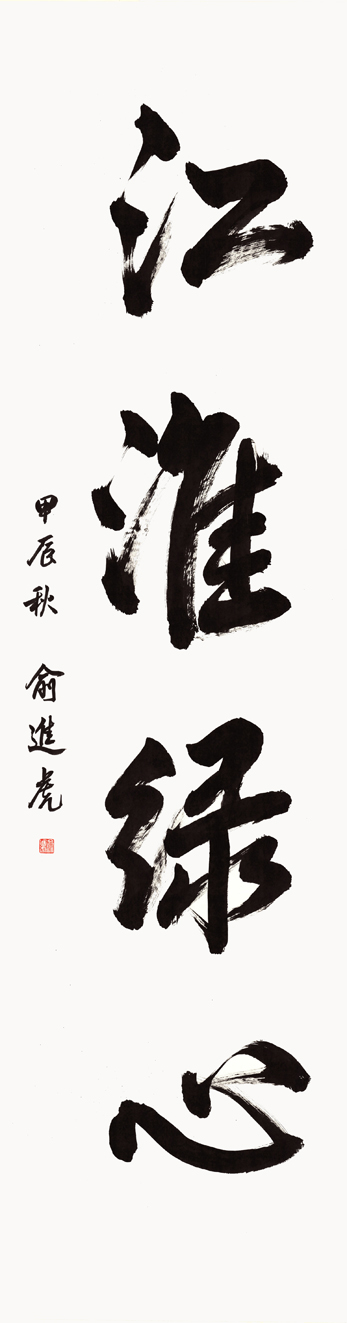 江淮绿心
甲辰秋 俞進虎